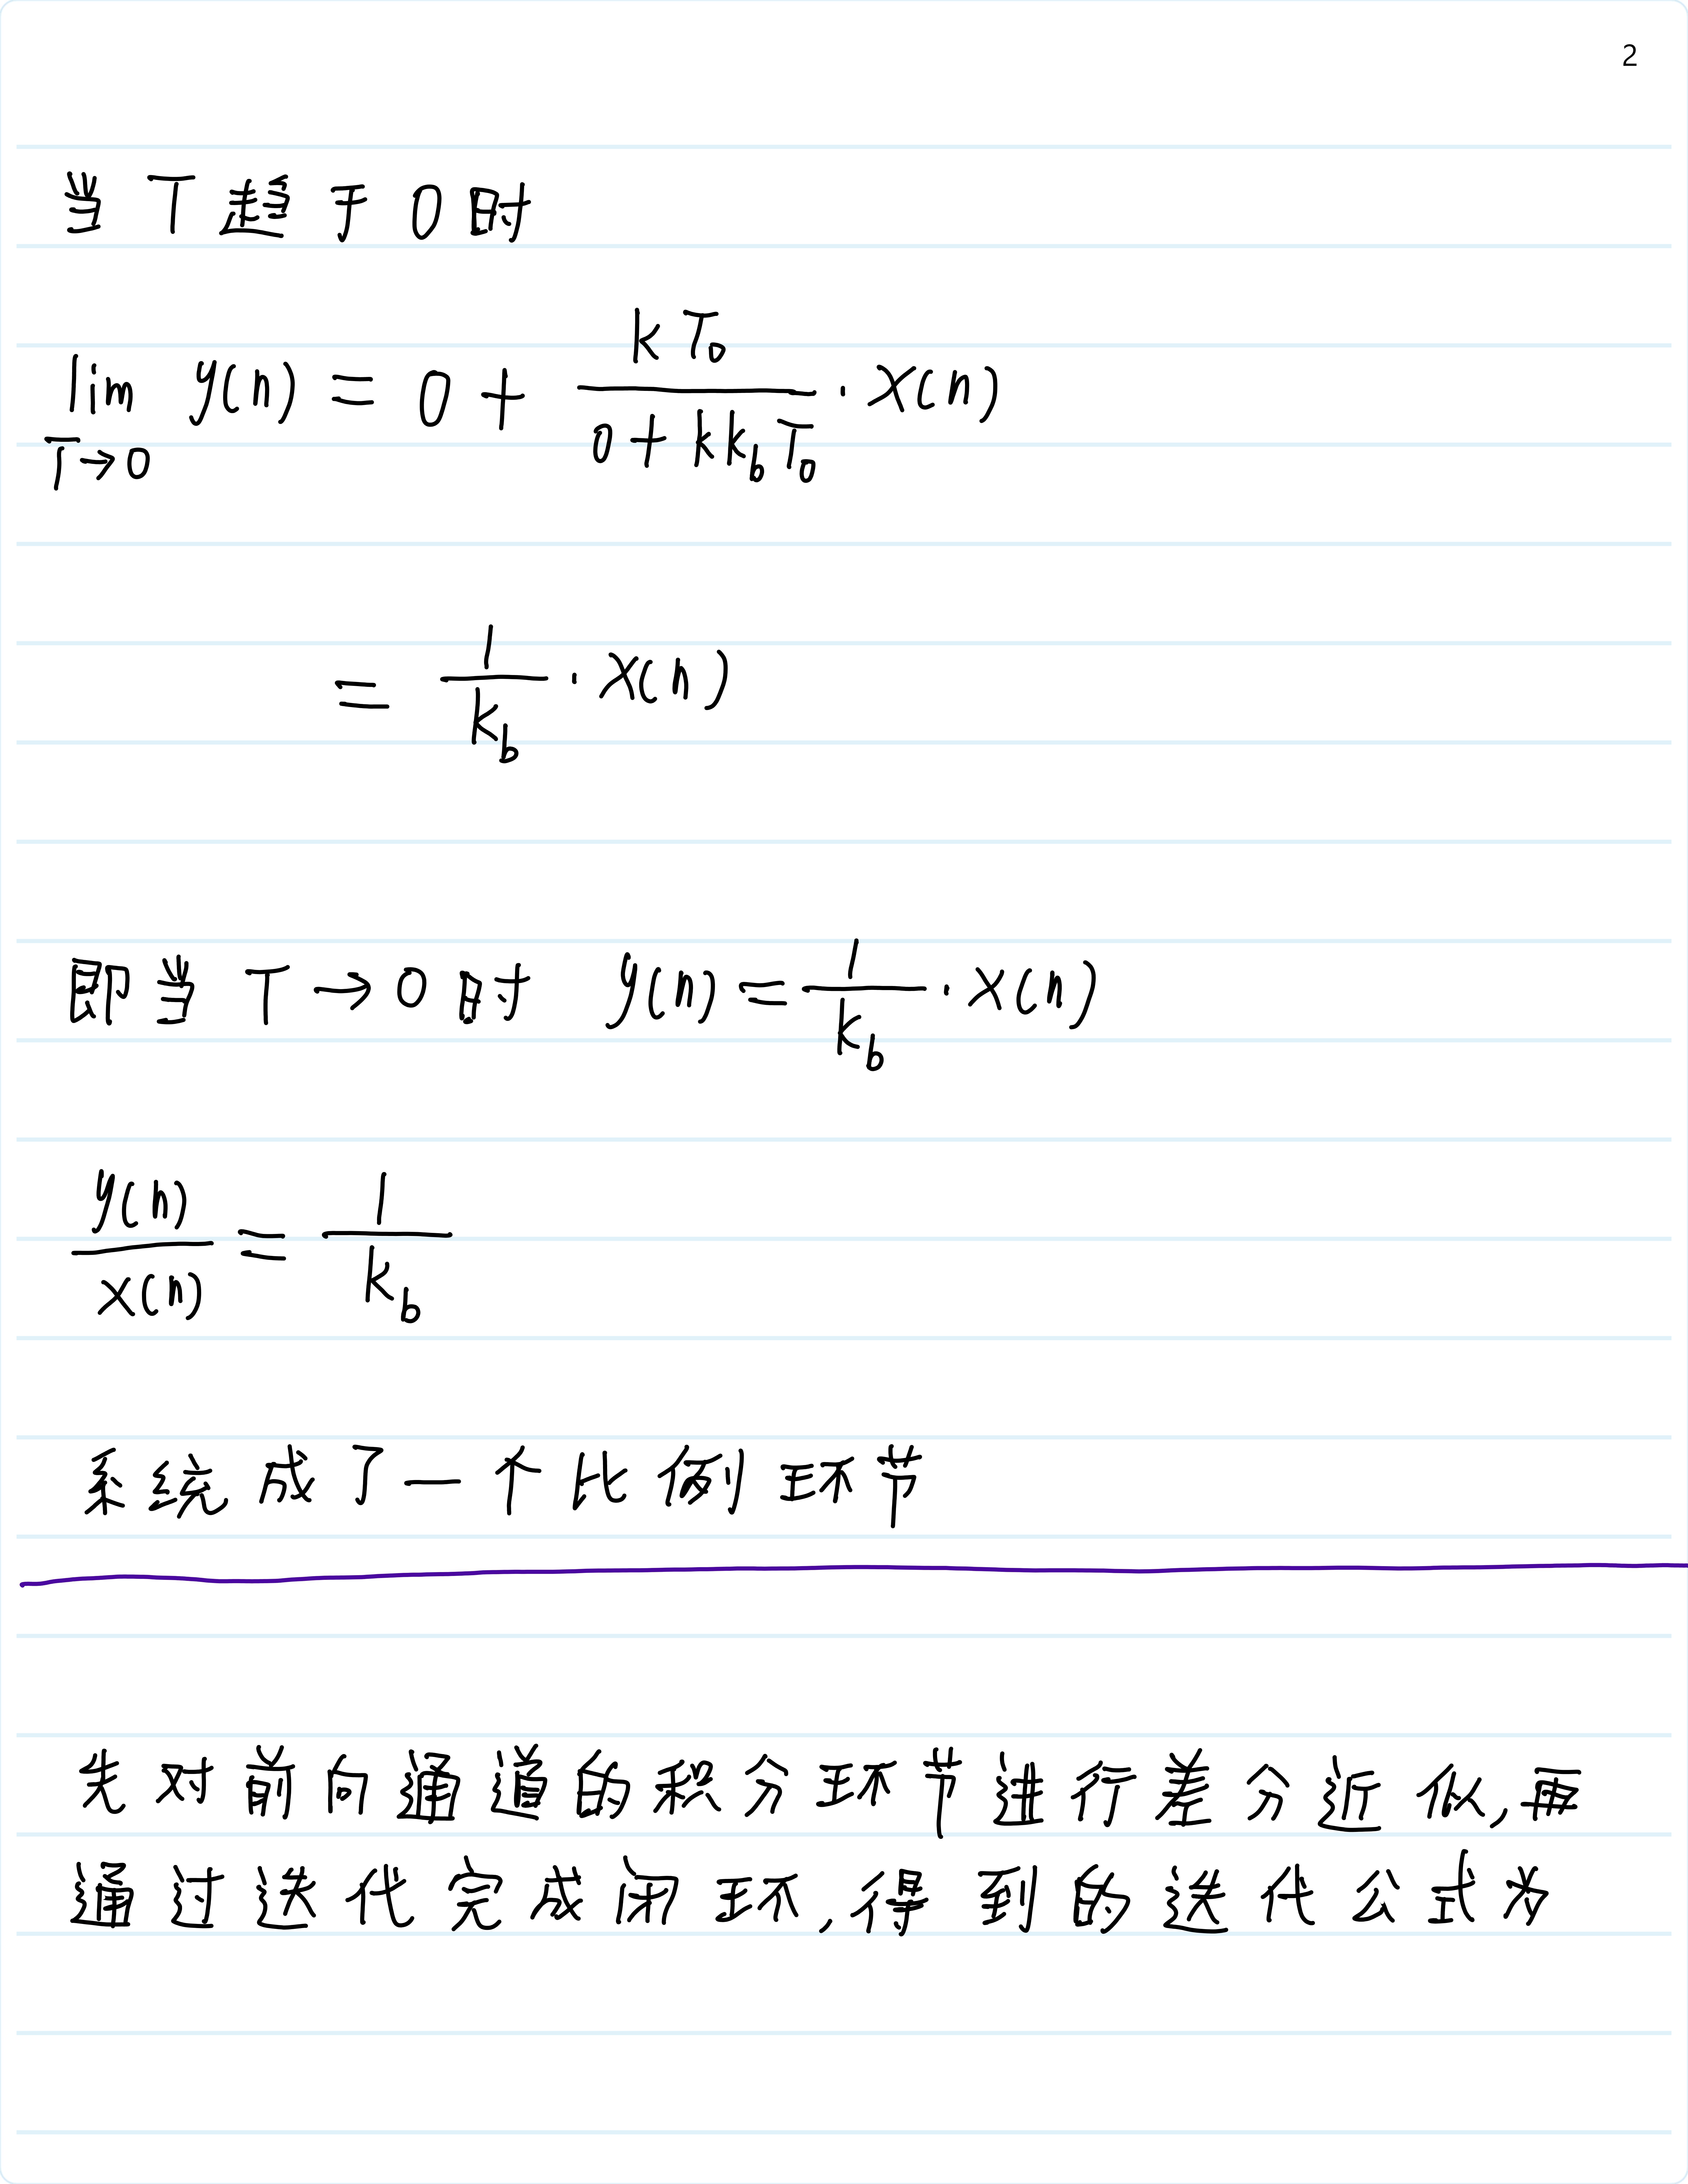 2
当 T 趋于 0 时
lim y(n) = 0 + kT₀ / (0 + kk_bT₀) · x(n)
T→0
= 1/k_b · x(n)
即当 T → 0 时 y(n) = 1/k_b · x(n)
y(n)/x(n) = 1/k_b
系统成了一个比例环节
先对前向通道的积分环节进行差分近似,再
通过迭代完成闭环,得到的迭代公式为